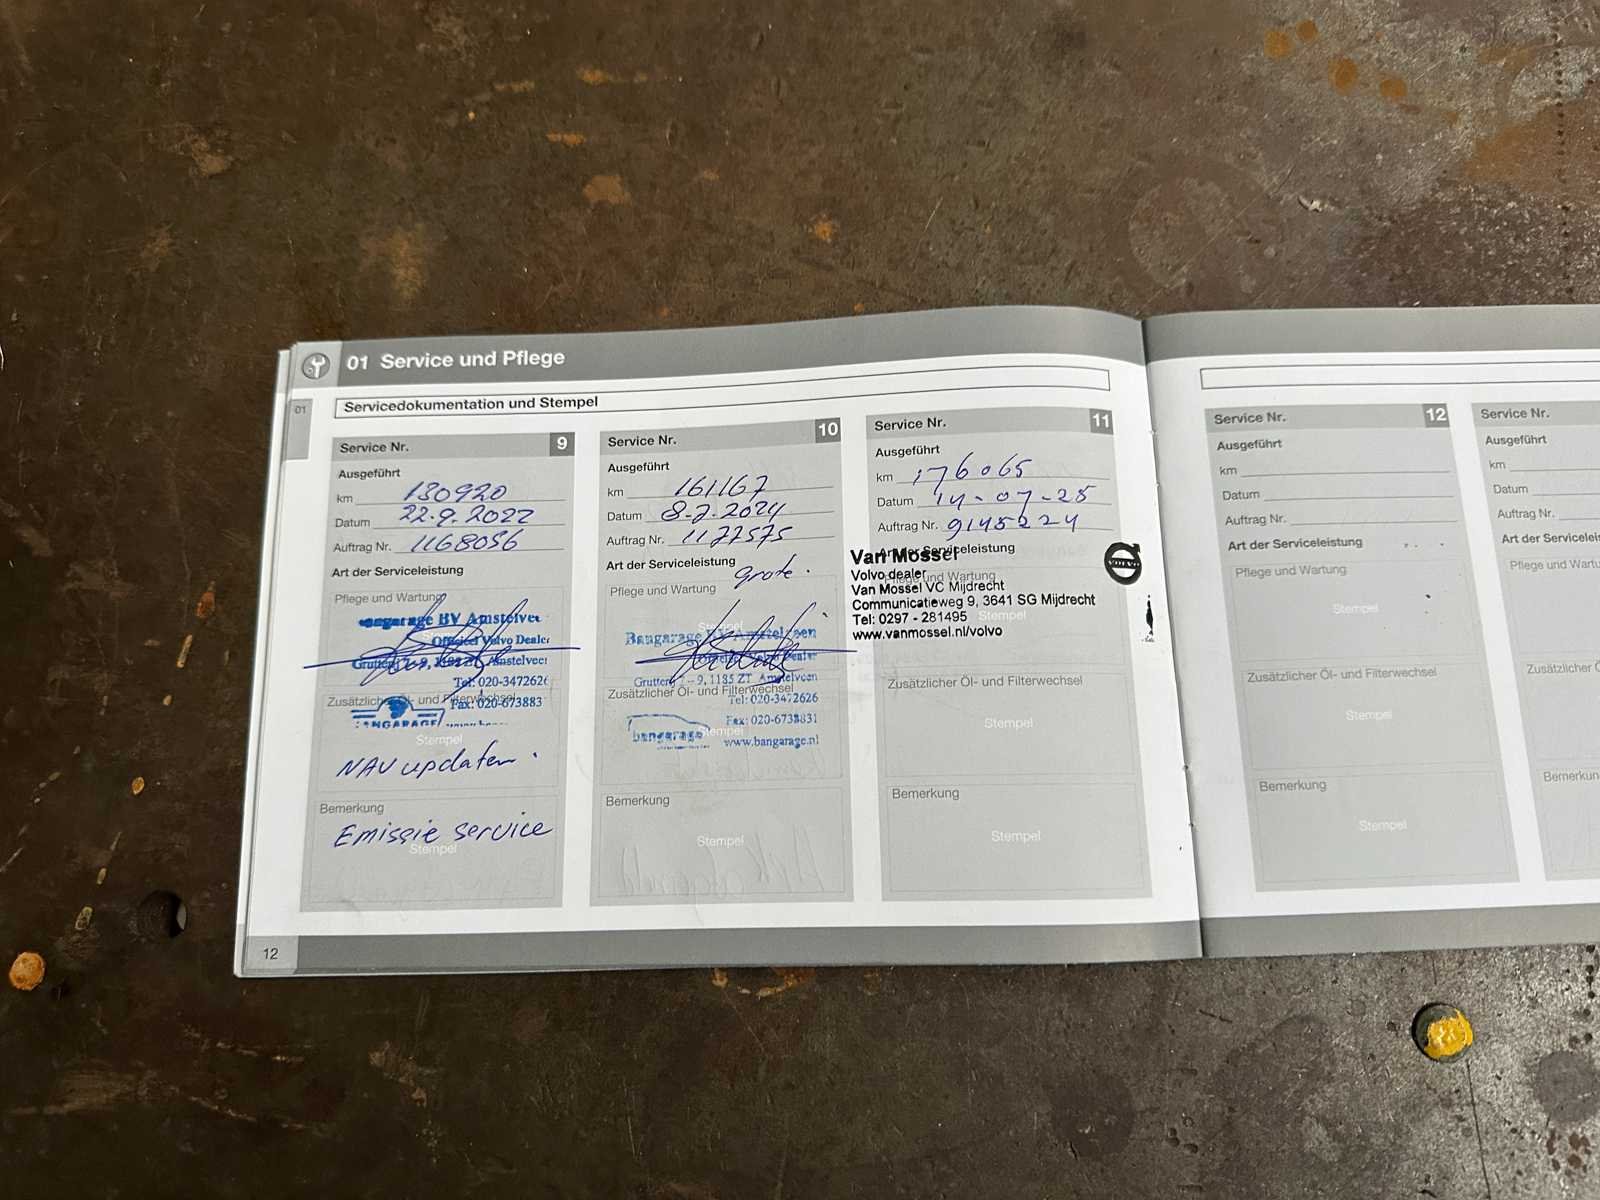 01 Service und Pflege
01
Servicedokumentation und Stempel
Service Nr. 9
Ausgeführt
km 130920
Datum 22-9-2022
Auftrag Nr. 1168056
Art der Serviceleistung
Pflege und Wartung
Bangarage BV Amstelveen
Officieel Volvo Dealer
Grutterij 7-9, 1185 ZT Amstelveen
Tel: 020-3472626
Zusätzlicher Öl- und Filterwechsel
Fax: 020-673883
BANGARAGE
Stempel
NAV updaten.
Bemerkung
Emissie service
Stempel
Service Nr. 10
Ausgeführt
km 161167
Datum 8-7-2024
Auftrag Nr. 1177575
Art der Serviceleistung
grote.
Pflege und Wartung
Stempel
Bangarage BV Amstelveen
Officieel Volvo Dealer
Grutterij 7-9, 1185 ZT Amstelveen
Zusätzlicher Öl- und Filterwechsel
Tel: 020-3472626
Fax: 020-6738831
Stempel
bangarage
www.bangarage.nl
Bemerkung
Stempel
Service Nr. 11
Ausgeführt
km 176065
Datum 14-07-25
Auftrag Nr. 9145224
Art der Serviceleistung
Van Mossel
Volvo dealer
Pflege und Wartung
Van Mossel VC Mijdrecht
Communicatieweg 9, 3641 SG Mijdrecht
Stempel
Tel: 0297 - 281495
www.vanmossel.nl/volvo
VOLVO
Zusätzlicher Öl- und Filterwechsel
Stempel
Bemerkung
Stempel
12
Service Nr. 12
Ausgeführt
km
Datum
Auftrag Nr.
Art der Serviceleistung
Pflege und Wartung
Stempel
Zusätzlicher Öl- und Filterwechsel
Stempel
Bemerkung
Stempel
Service Nr.
Ausgeführt
km
Datum
Auftrag Nr.
Art der
Pflege und
Zusätzlicher